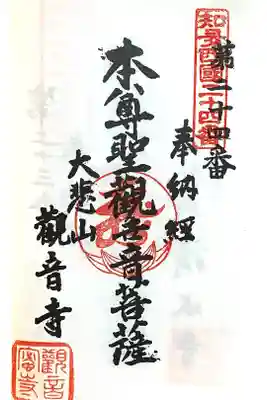 知多西國二十四番
第二十四番
奉納經
本尊聖觀世音菩薩
大悲山
觀音寺